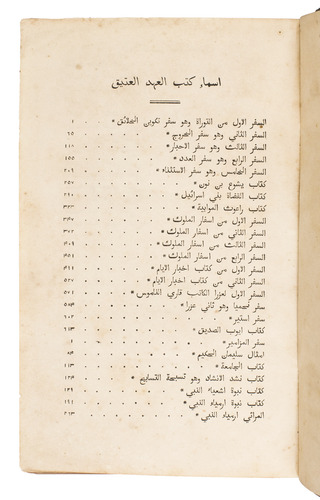 اسماء كتب العهد العتيق
السفر الاول من التوراة وهو سفر تكوين الخلائق * ١
السفر الثاني وهو سفر الخروج * ٦٥
السفر الثالث وهو سفر الاحبار *
السفر الرابع وهو سفر العدد * ١٥٥
السفر الخامس وهو سفر الاستثناء *
كتاب يشوع بن نون * ٢٥٧
كتاب القضاة بني اسرائيل *
كتاب راعوث الموابية * ٣٢٣
السفر الاول من اسفار الملوك *
السفر الثاني من اسفار الملوك * ٣٧٢
السفر الثالث من اسفار الملوك * ٤٠٩
السفر الرابع من اسفار الملوك * ٤٥١
السفر الاول من كتاب اخبار الايام * ٤٩١
السفر الثاني من كتاب اخبار الايام * ٥٢٧
السفر الاول لعزرا الكاتب قاري الناموس * ٥٧١
سفر نحميا وهو ثاني عزرا * ٥٨٤
سفر استير * ٦٠٢
كتاب ايوب الصديق * ٦١٣
سفر المزامير * ١
امثال سليمان الحكيم * ٨٤
كتاب الجامعة * ١١٣
كتاب نشد الانشاد وهو تسبحة التسابيح *
كتاب نبوة اشعياء النبي * ١٢٩
كتاب نبوة ارمياء النبي * ١٩١
المراثي ارمياء النبي * ٢٦٣